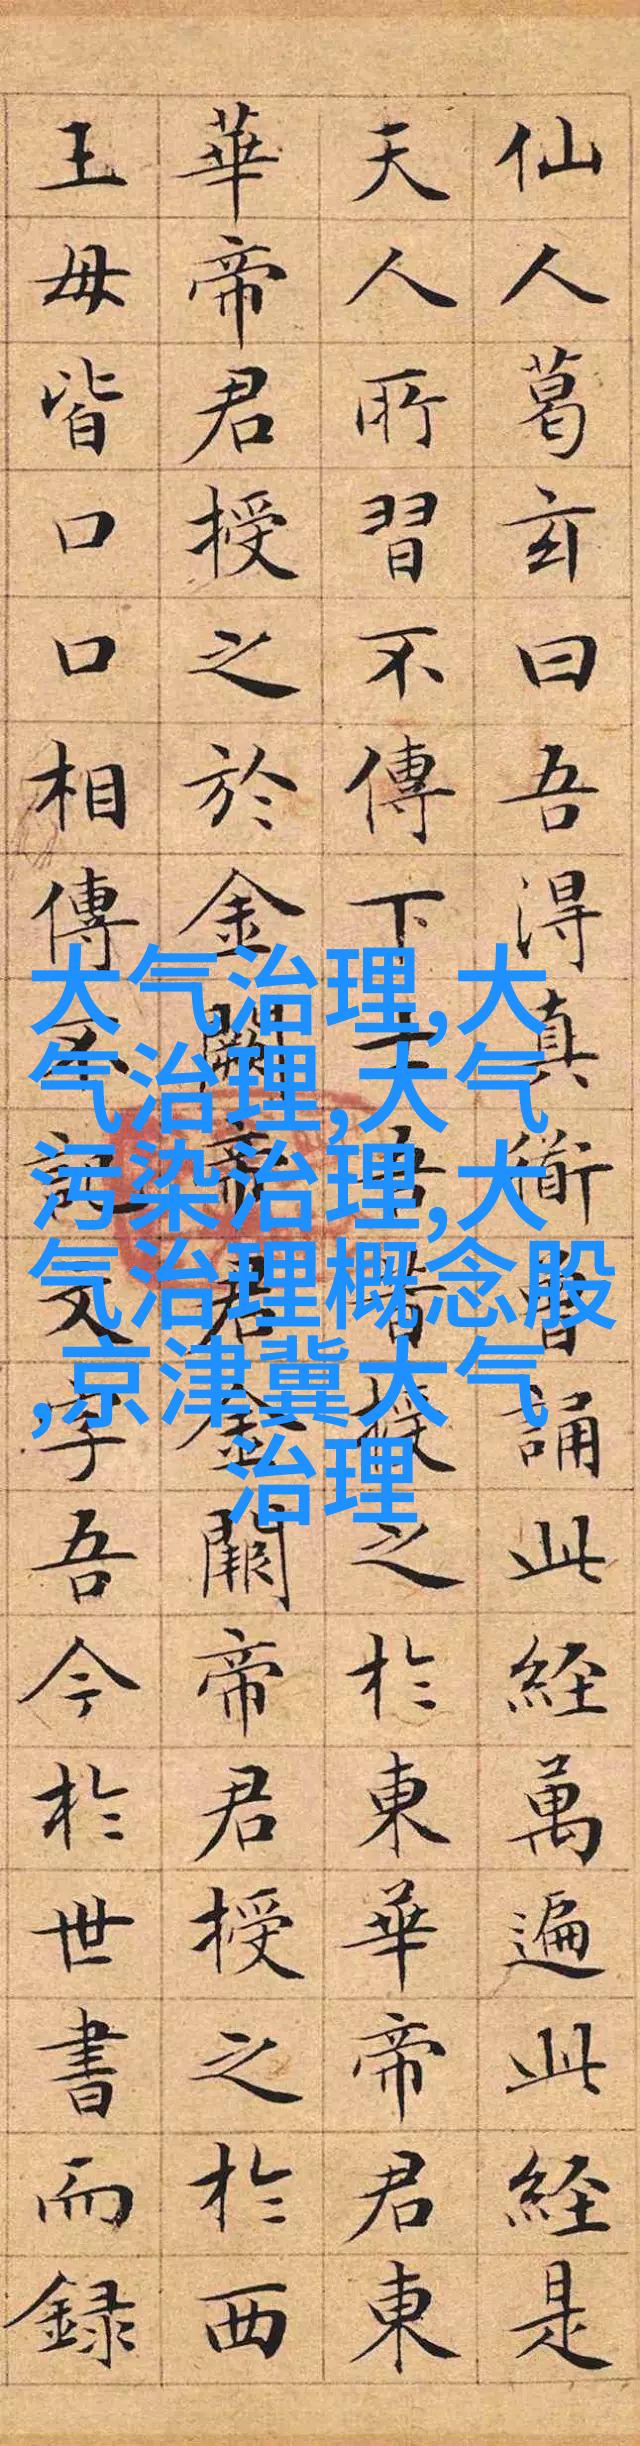 仙人葛玄曰吾淂真衜曾誦此経萬遍此経是
天人所習不傳下士吾昔授之於東華帝君東
華帝君授之於金闕帝君金闕帝君授之於西
王母皆口口相傳不記文字吾今於世書而録
大气治理,大
气治理,大气
污染治理,大
气治理概念股
,京津冀大气
治理